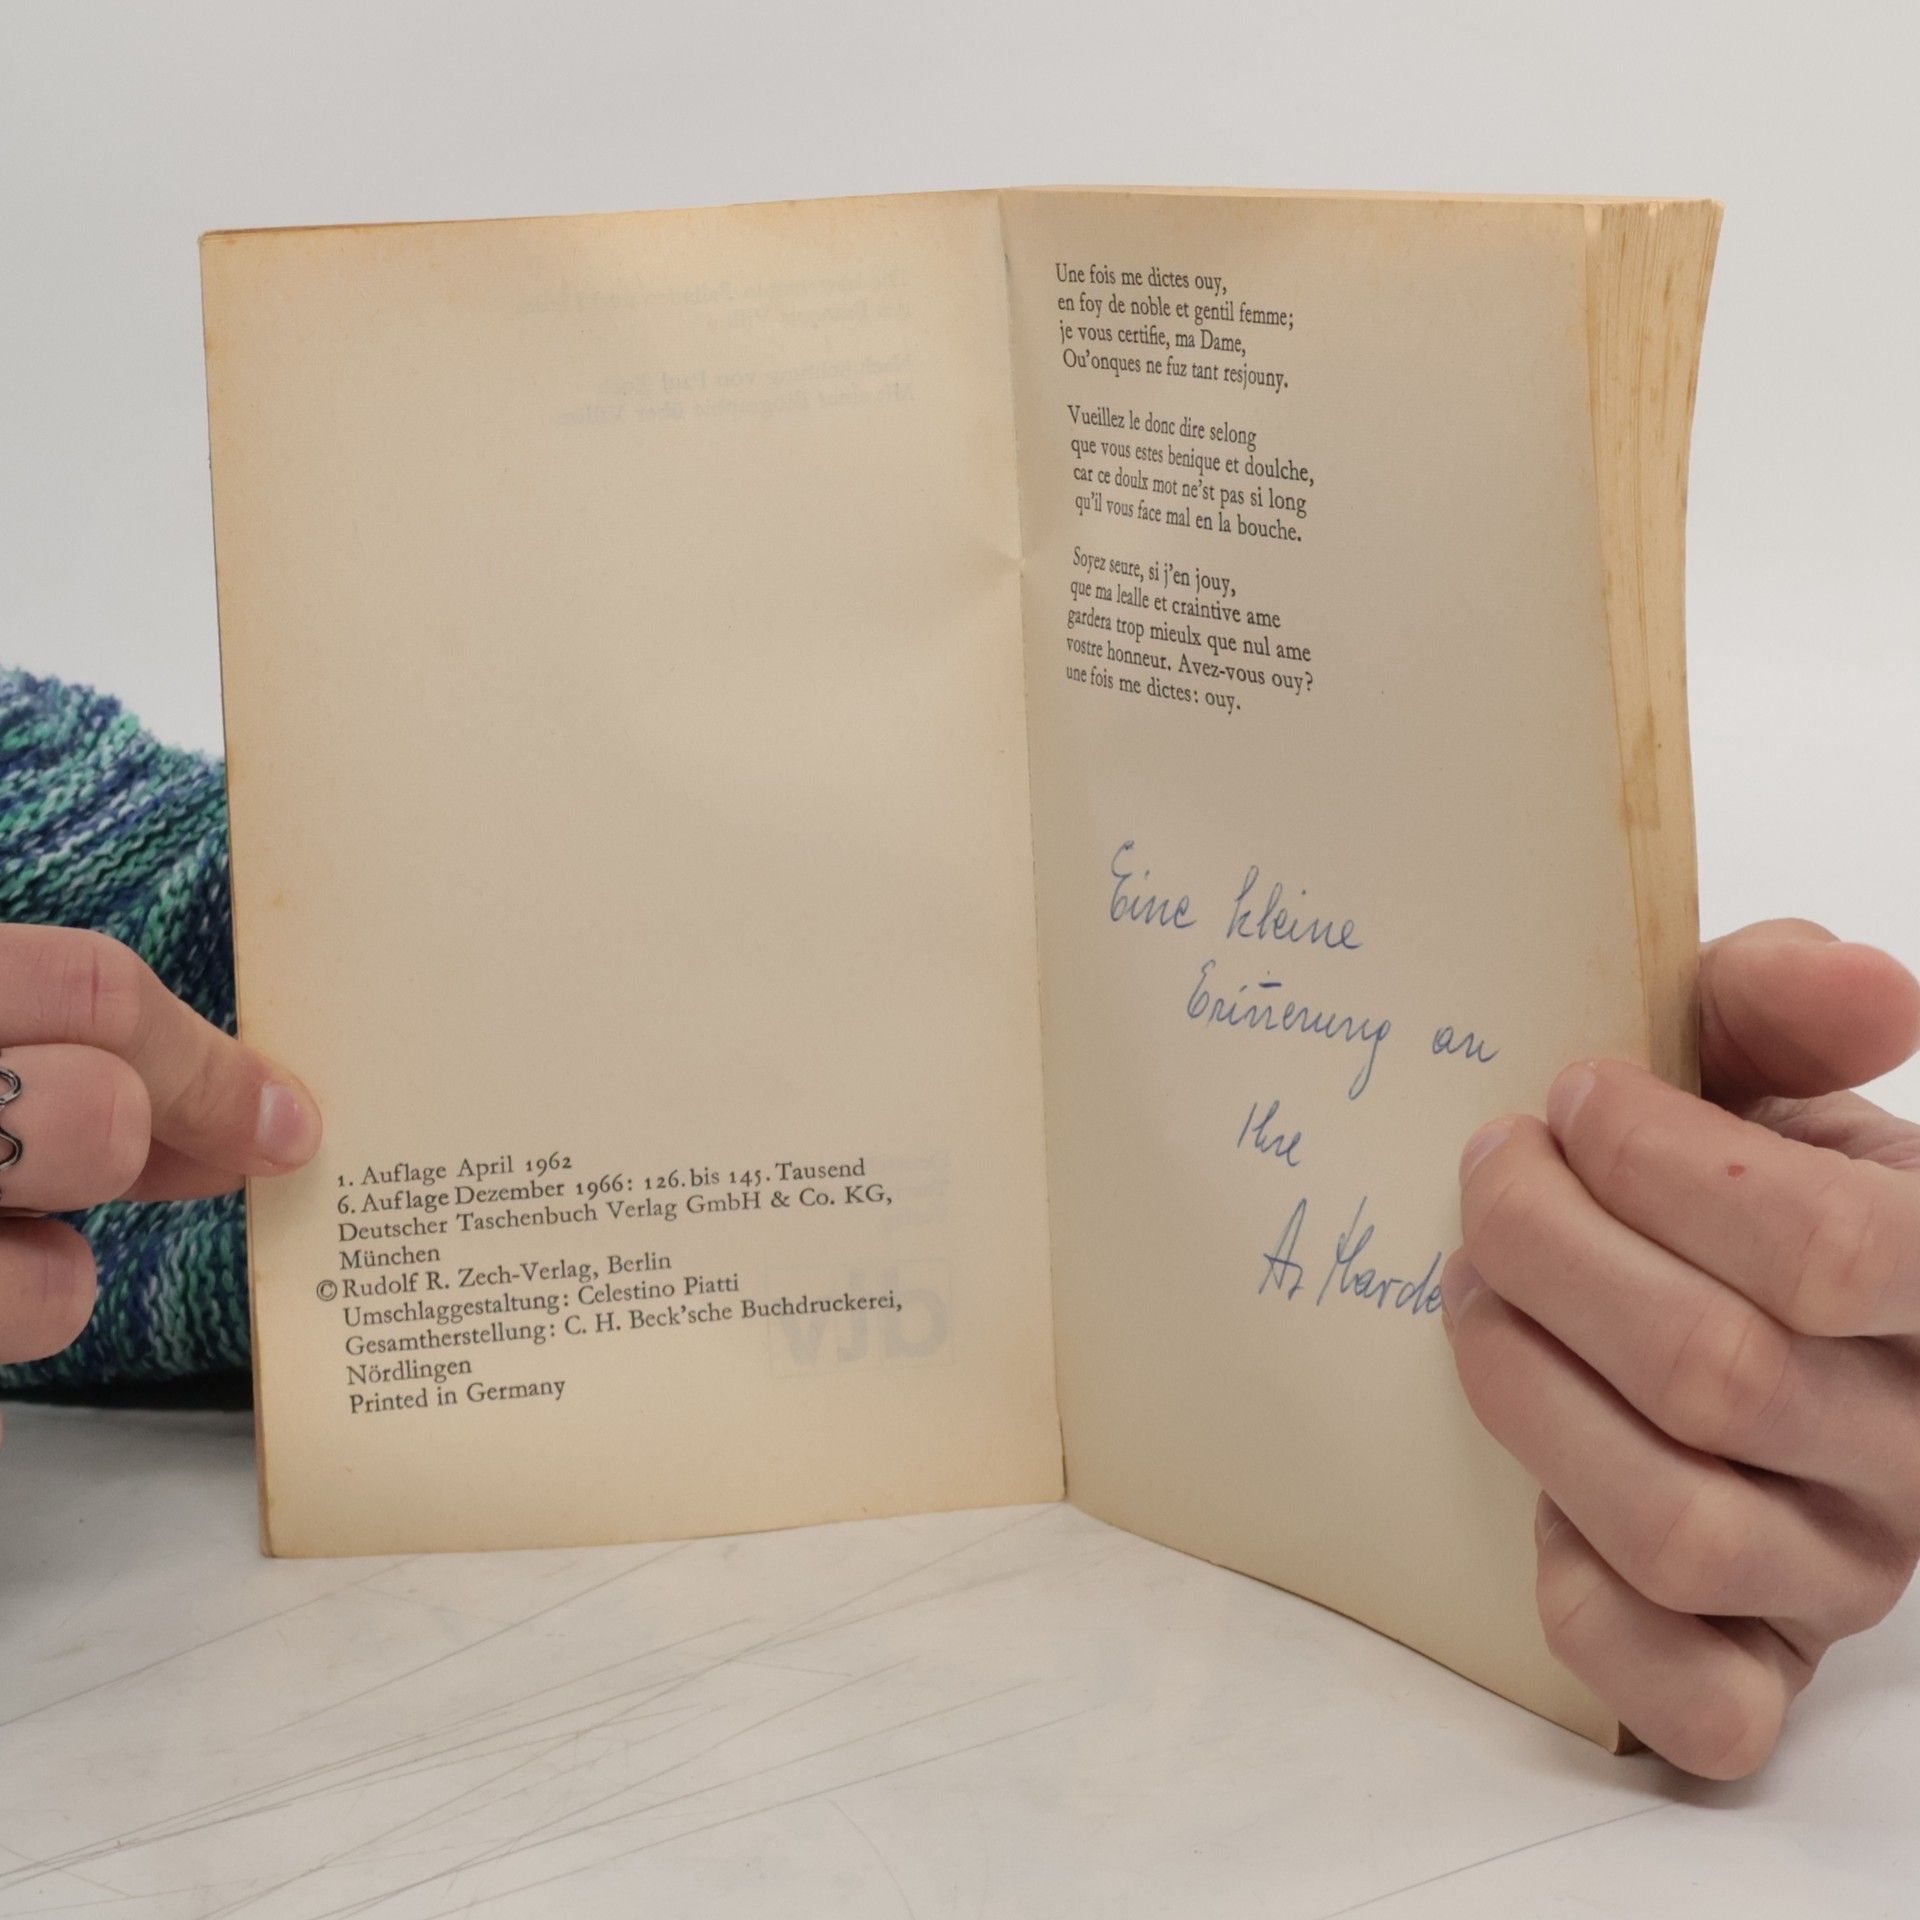 1. Auflage April 1962
6. Auflage Dezember 1966: 126. bis 145. Tausend
Deutscher Taschenbuch Verlag GmbH & Co. KG,
München
© Rudolf R. Zech-Verlag, Berlin
Umschlaggestaltung: Celestino Piatti
Gesamtherstellung: C. H. Beck'sche Buchdruckerei,
Nördlingen
Printed in Germany
dtv
Une fois me dictes ouy,
en foy de noble et gentil femme;
je vous certifie, ma Dame,
Ou'onques ne fuz tant resjouny.
Vueillez le donc dire selong
que vous estes benique et doulche,
car ce doulx mot ne'st pas si long
qu'il vous face mal en la bouche.
Soyez seure, si j'en jouy,
que ma lealle et craintive ame
gardera trop mieulx que nul ame
vostre honneur. Avez-vous ouy?
une fois me dictes: ouy.
Eine kleine
Erin̄erung an
Ihre